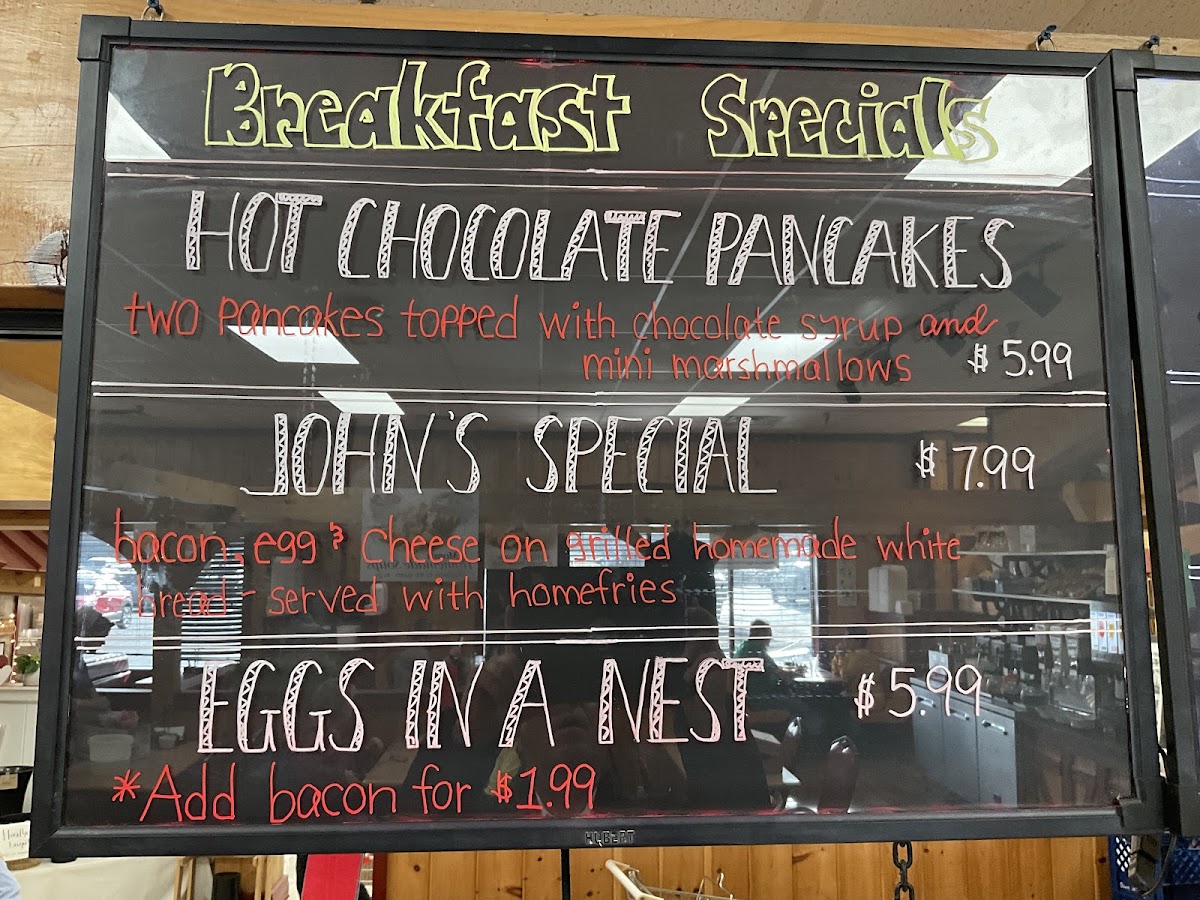 Breakfast Specials
HOT CHOCOLATE PANCAKES
two pancakes topped with chocolate syrup and
mini marshmallows $5.99
JOHN'S SPECIAL $7.99
bacon, egg & cheese on grilled homemade white
bread - served with homefries
EGGS IN A NEST $5.99
*Add bacon for $1.99